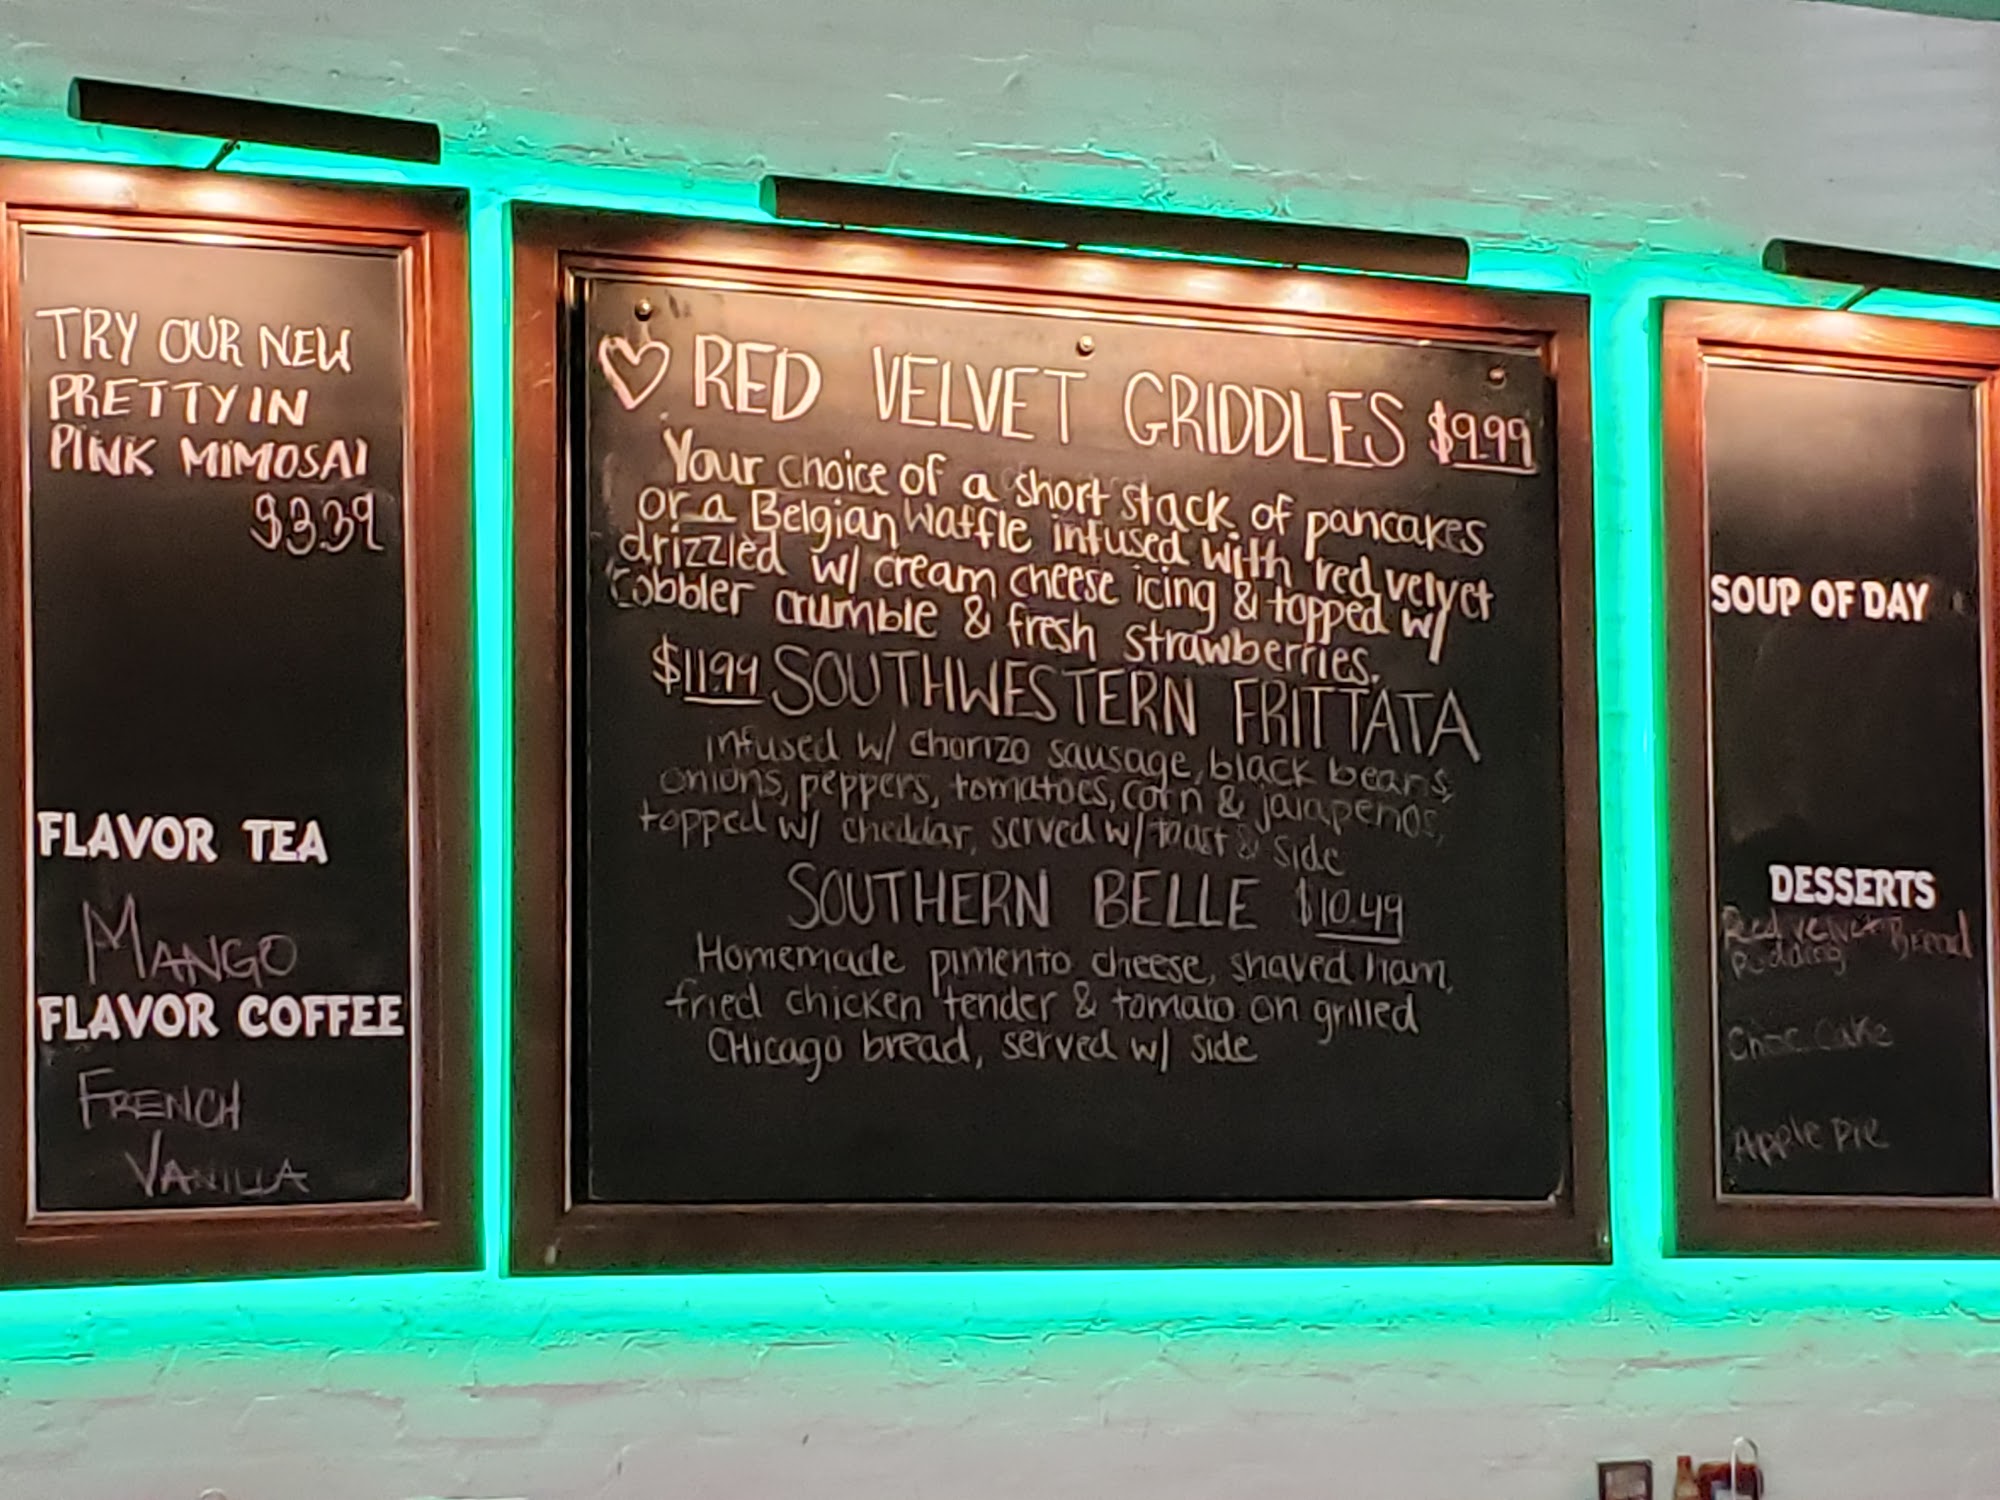 TRY OUR NEW
PRETTY IN
PINK MIMOSA!
$3.39
FLAVOR TEA
MANGO
FLAVOR COFFEE
FRENCH
VANILLA
RED VELVET GRIDDLES $9.99
Your choice of a short stack of pancakes
or a Belgian waffle infused with red velvet
drizzled w/ cream cheese icing & topped w/
cobbler crumble & fresh strawberries.
$11.99 SOUTHWESTERN FRITTATA
infused w/ chorizo sausage, black beans,
onions, peppers, tomatoes, corn & jalapenos,
topped w/ cheddar, served w/ toast & side
SOUTHERN BELLE $10.49
Homemade pimento cheese, shaved ham,
fried chicken tender & tomato on grilled
CHicago bread, served w/ side
SOUP OF DAY
DESSERTS
Red velvet Bread
Pudding
Choc Cake
Apple Pie